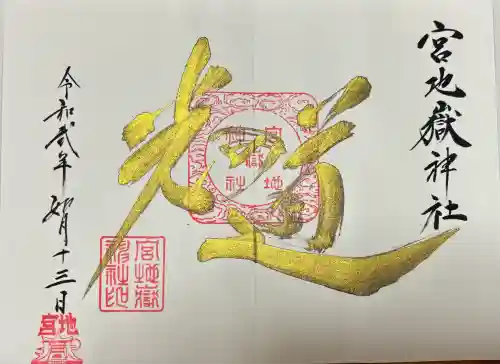 宮地嶽神社
光の道
宮地嶽神社
令和弐年 如月十三日
宮地嶽神社印
宮地